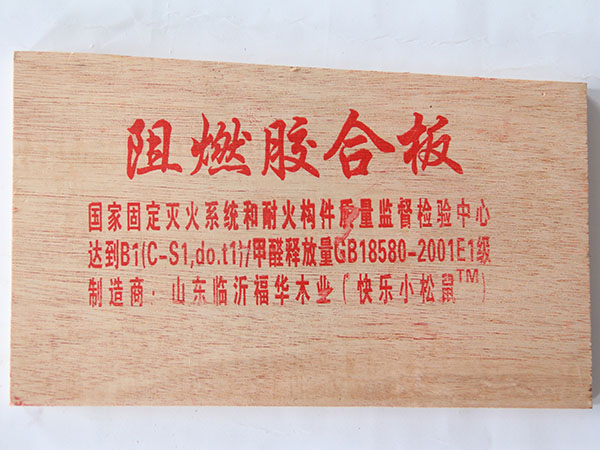 阻燃胶合板
国家固定灭火系统和耐火构件质量监督检验中心
达到B1(C-S1,do.t1)/甲醛释放量GB18580-2001E1级
制造商·山东临沂福华木业(快乐小松鼠TM)